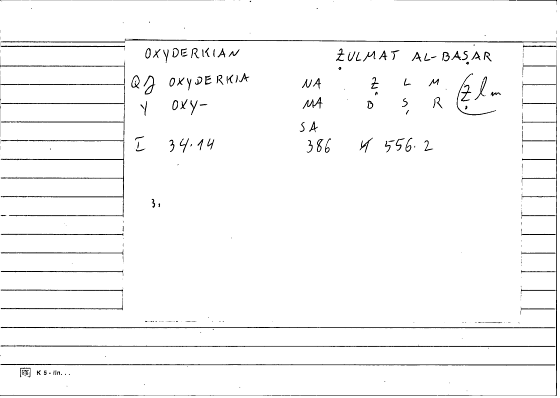 OXYDERKIAN ẒULMAT AL-BAṢAR
QJ OXYDERKIA NA Ẓ L M Ẓlm
Y OXY- MA B Ṣ R
SA
I 34.14 386 556.2
3.
K 5 - lin. . .